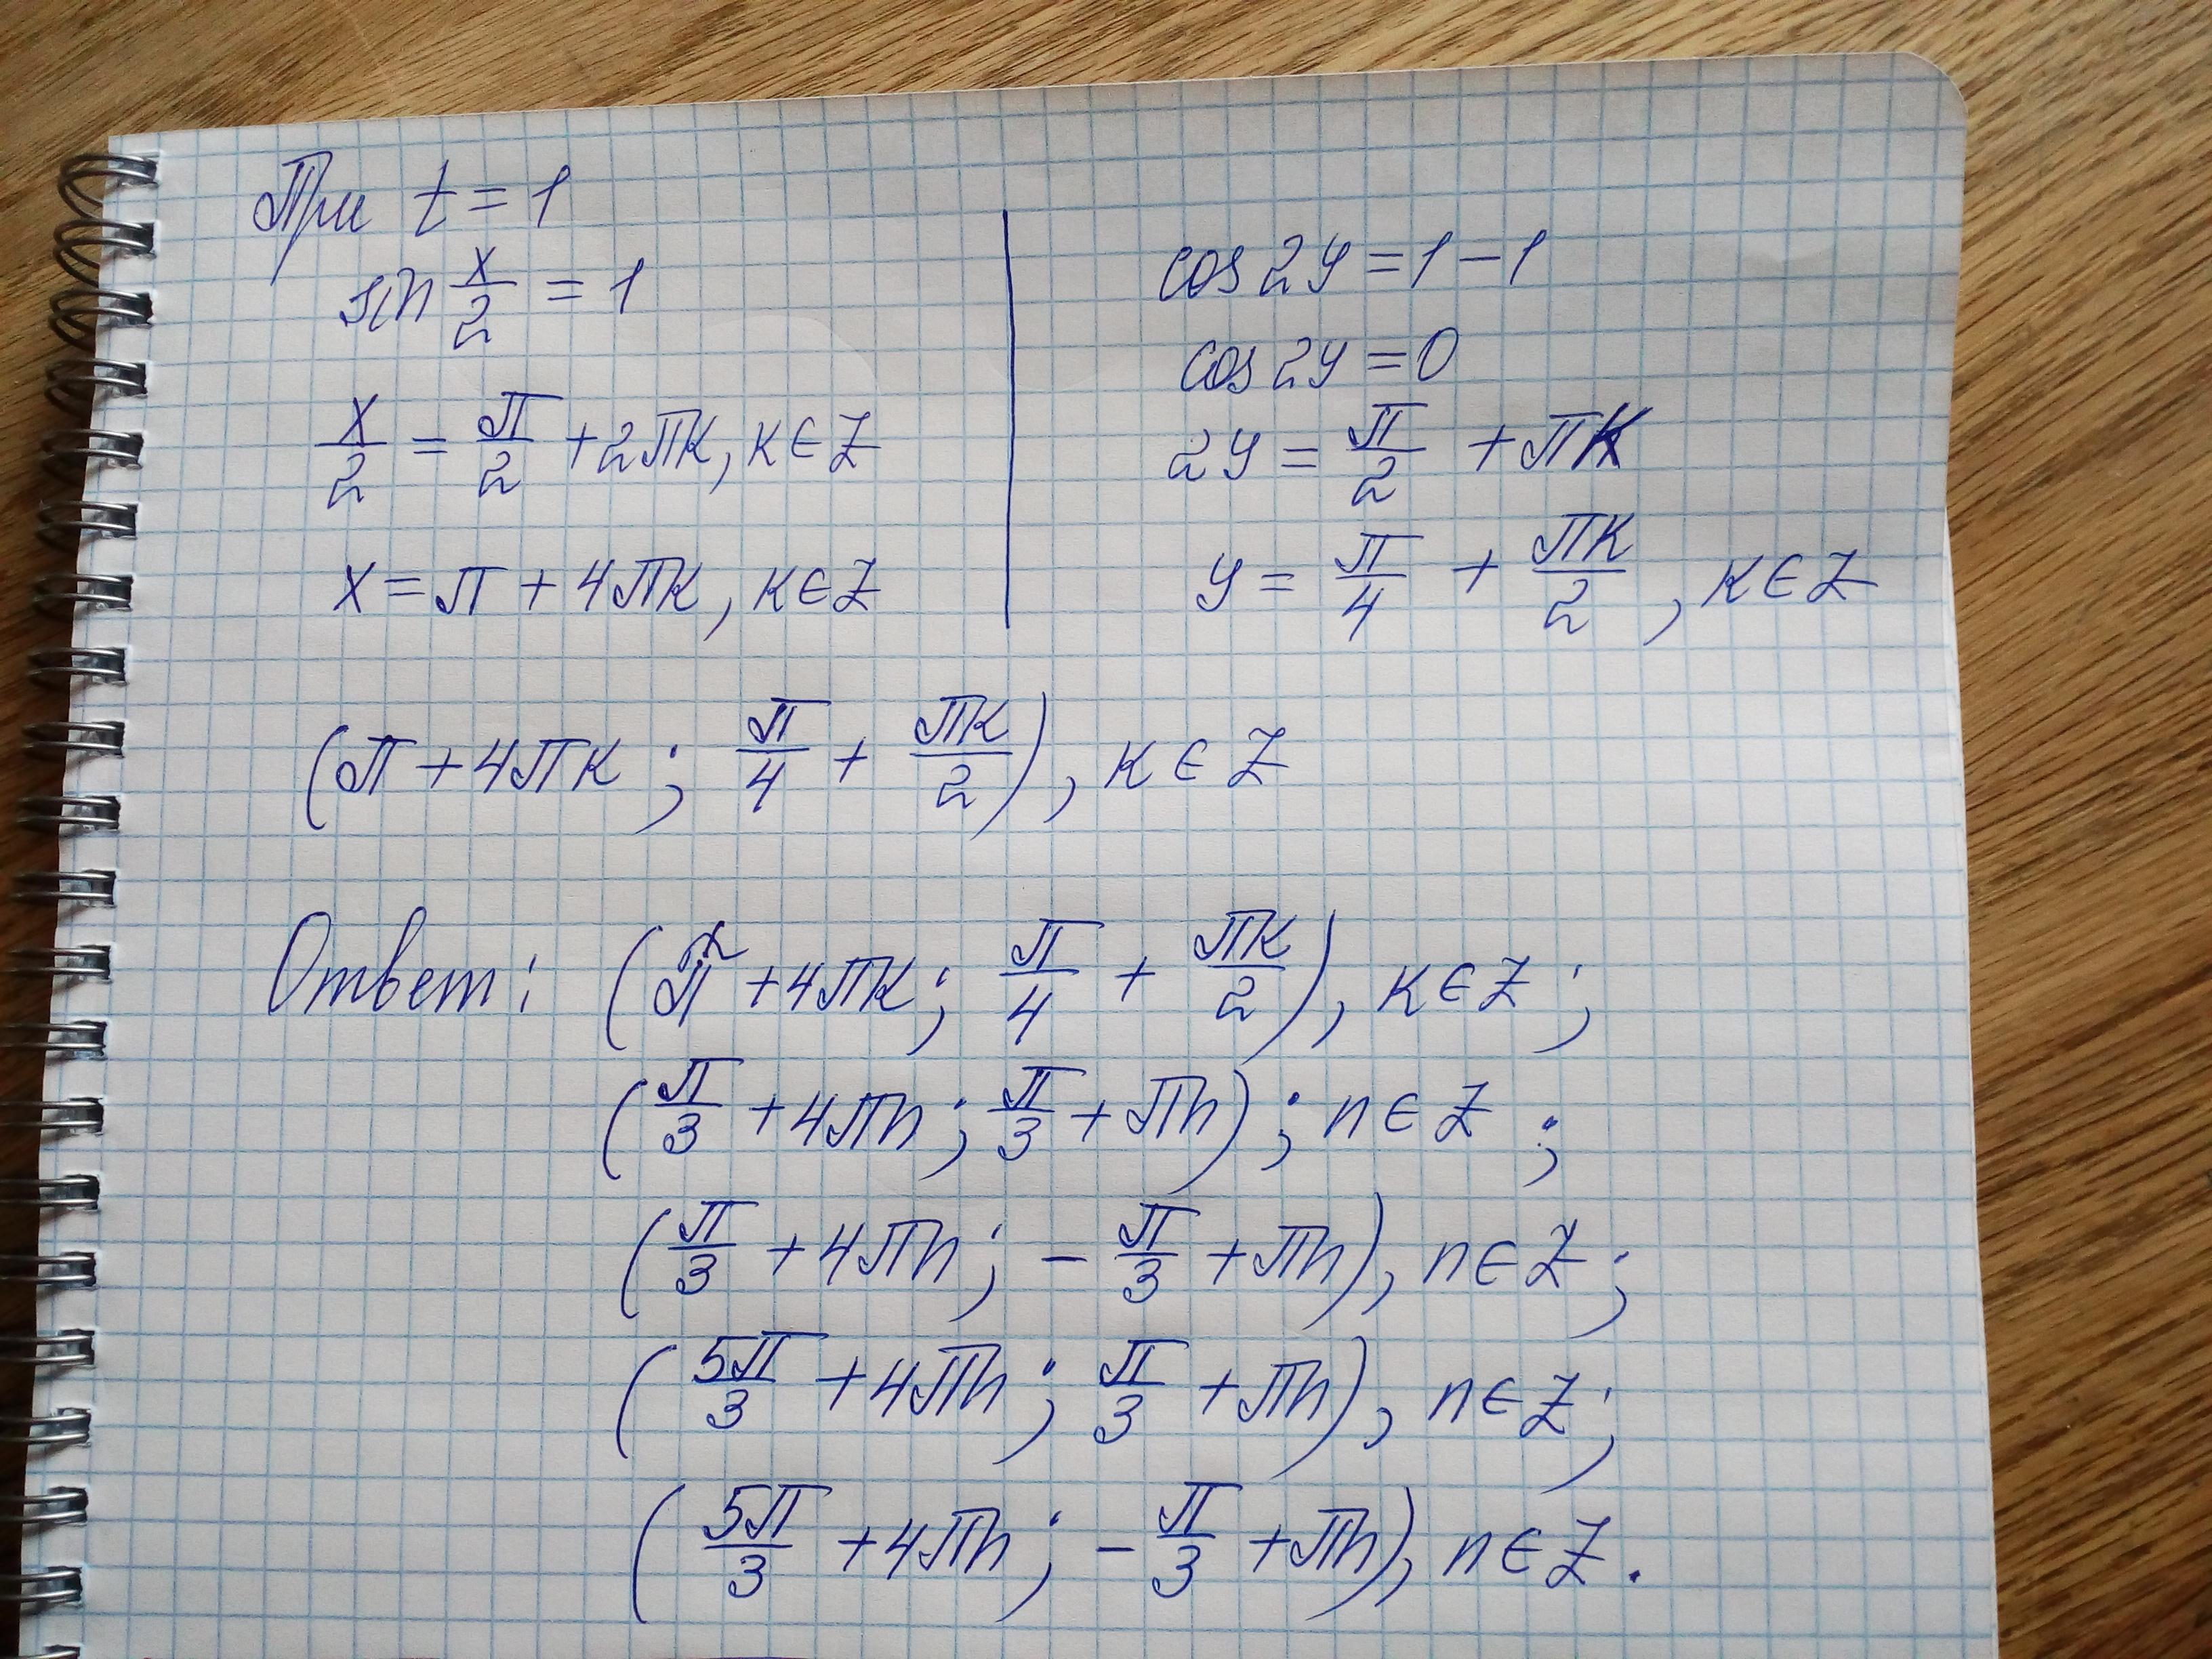 При t = 1
sin x/2 = 1
x/2 = π/2 + 2πk, k ∈ Z
x = π + 4πk, k ∈ Z
cos 2y = 1 − 1
cos 2y = 0
2y = π/2 + πk
y = π/4 + πk/2, k ∈ Z
(π + 4πk; π/4 + πk/2), k ∈ Z
Ответ: (π + 4πk; π/4 + πk/2), k ∈ Z;
(π/3 + 4πn; π/3 + πn); n ∈ Z;
(π/3 + 4πn; −π/3 + πn), n ∈ Z;
(5π/3 + 4πn; π/3 + πn), n ∈ Z;
(5π/3 + 4πn; −π/3 + πn), n ∈ Z.